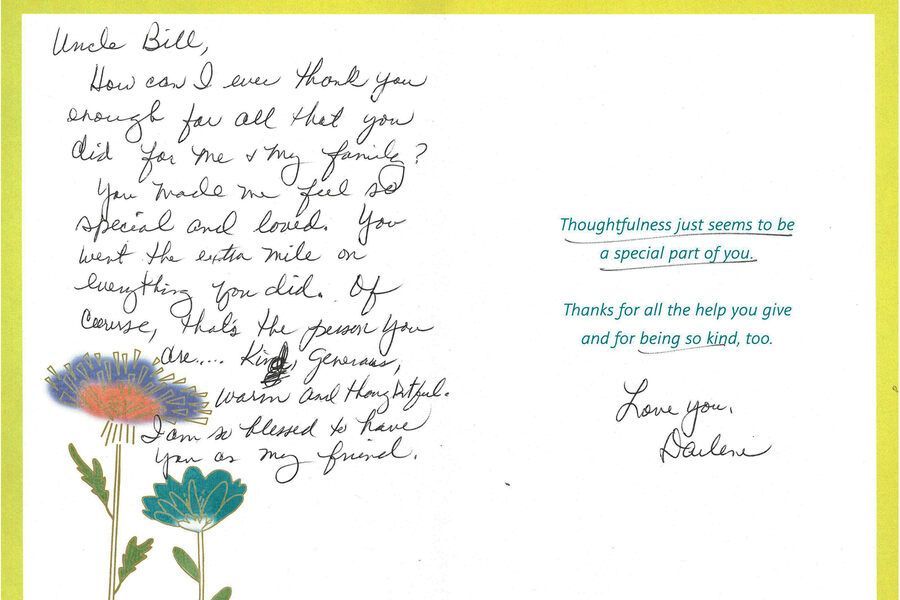 Uncle Bill,
How can I ever thank you
enough for all that you
did for me & my family?
You made me feel so
special and loved. You
went the extra mile on
everything you did. Of
Course, that's the person you
are.... Kind, Generous,
warm and thoughtful.
I am so blessed to have
you as my friend.
Thoughtfulness just seems to be
a special part of you.
Thanks for all the help you give
and for being so kind, too.
Love you,
Darlene